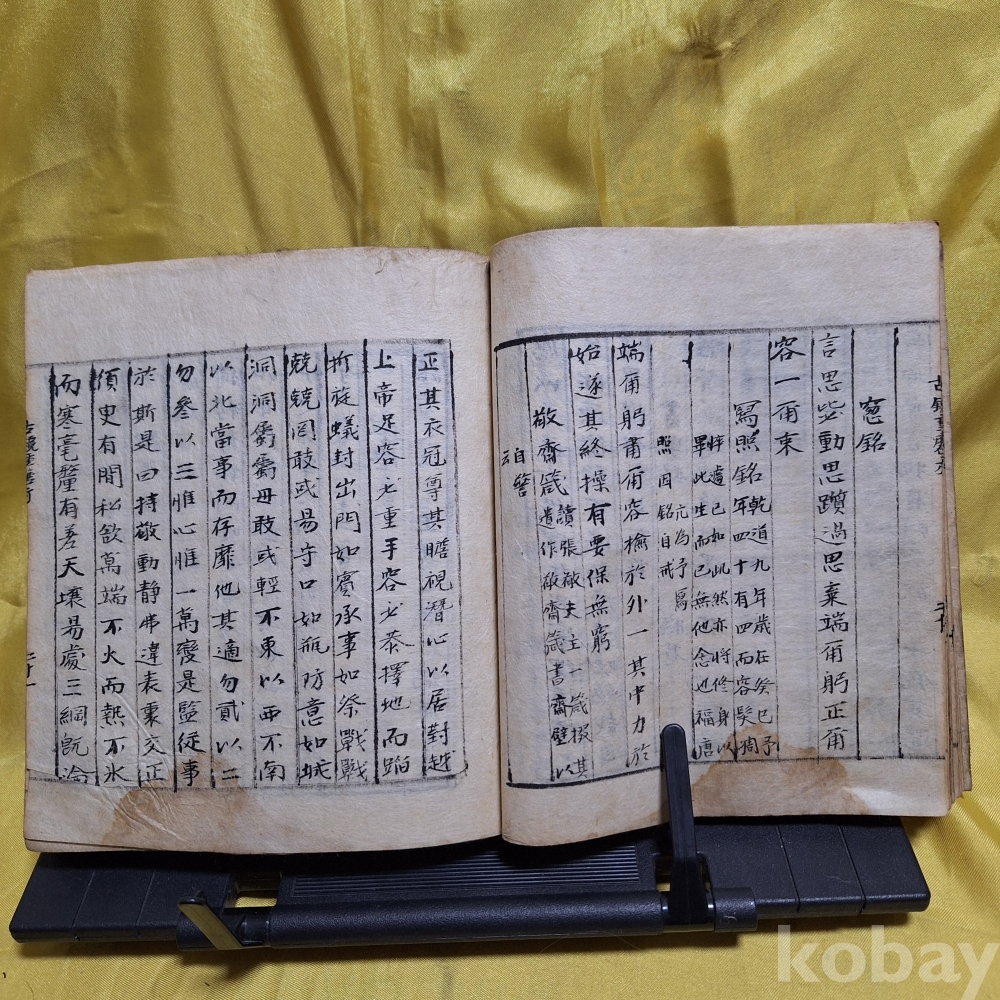 窓銘
言思毖動思躓過思棄端甬躬正甬
容一甬束
寫照銘
乾道九年歲在癸巳予
年四十有四而容髮凋
悴遽已如此然亦將修身以
畢此生而已無他念也福唐
亢為予寫
照因銘自戒
端甬躬肅甬容檢於外一其中力於
始遂其終操有要保無窮
敬齋箴
讀張敬夫主一箴掇其
遺作敬齋箴書齋壁以
自警
云
正其衣冠尊其瞻視潛心以居對越
上帝足容必重手容必恭擇地而蹈
折旋蟻封出門如賓承事如祭戰戰
兢兢罔敢或易守口如瓶防意如城
洞洞屬屬毋敢或輕不東以西不南
以北當事而存靡他其適勿貳以二
勿參以三惟心惟一萬變是監從事
於斯是曰持敬動靜弗違表裏交正
須臾有間私欲萬端不火而熱不氷
而寒毫釐有差天壤易處三綱旣淪
kobay